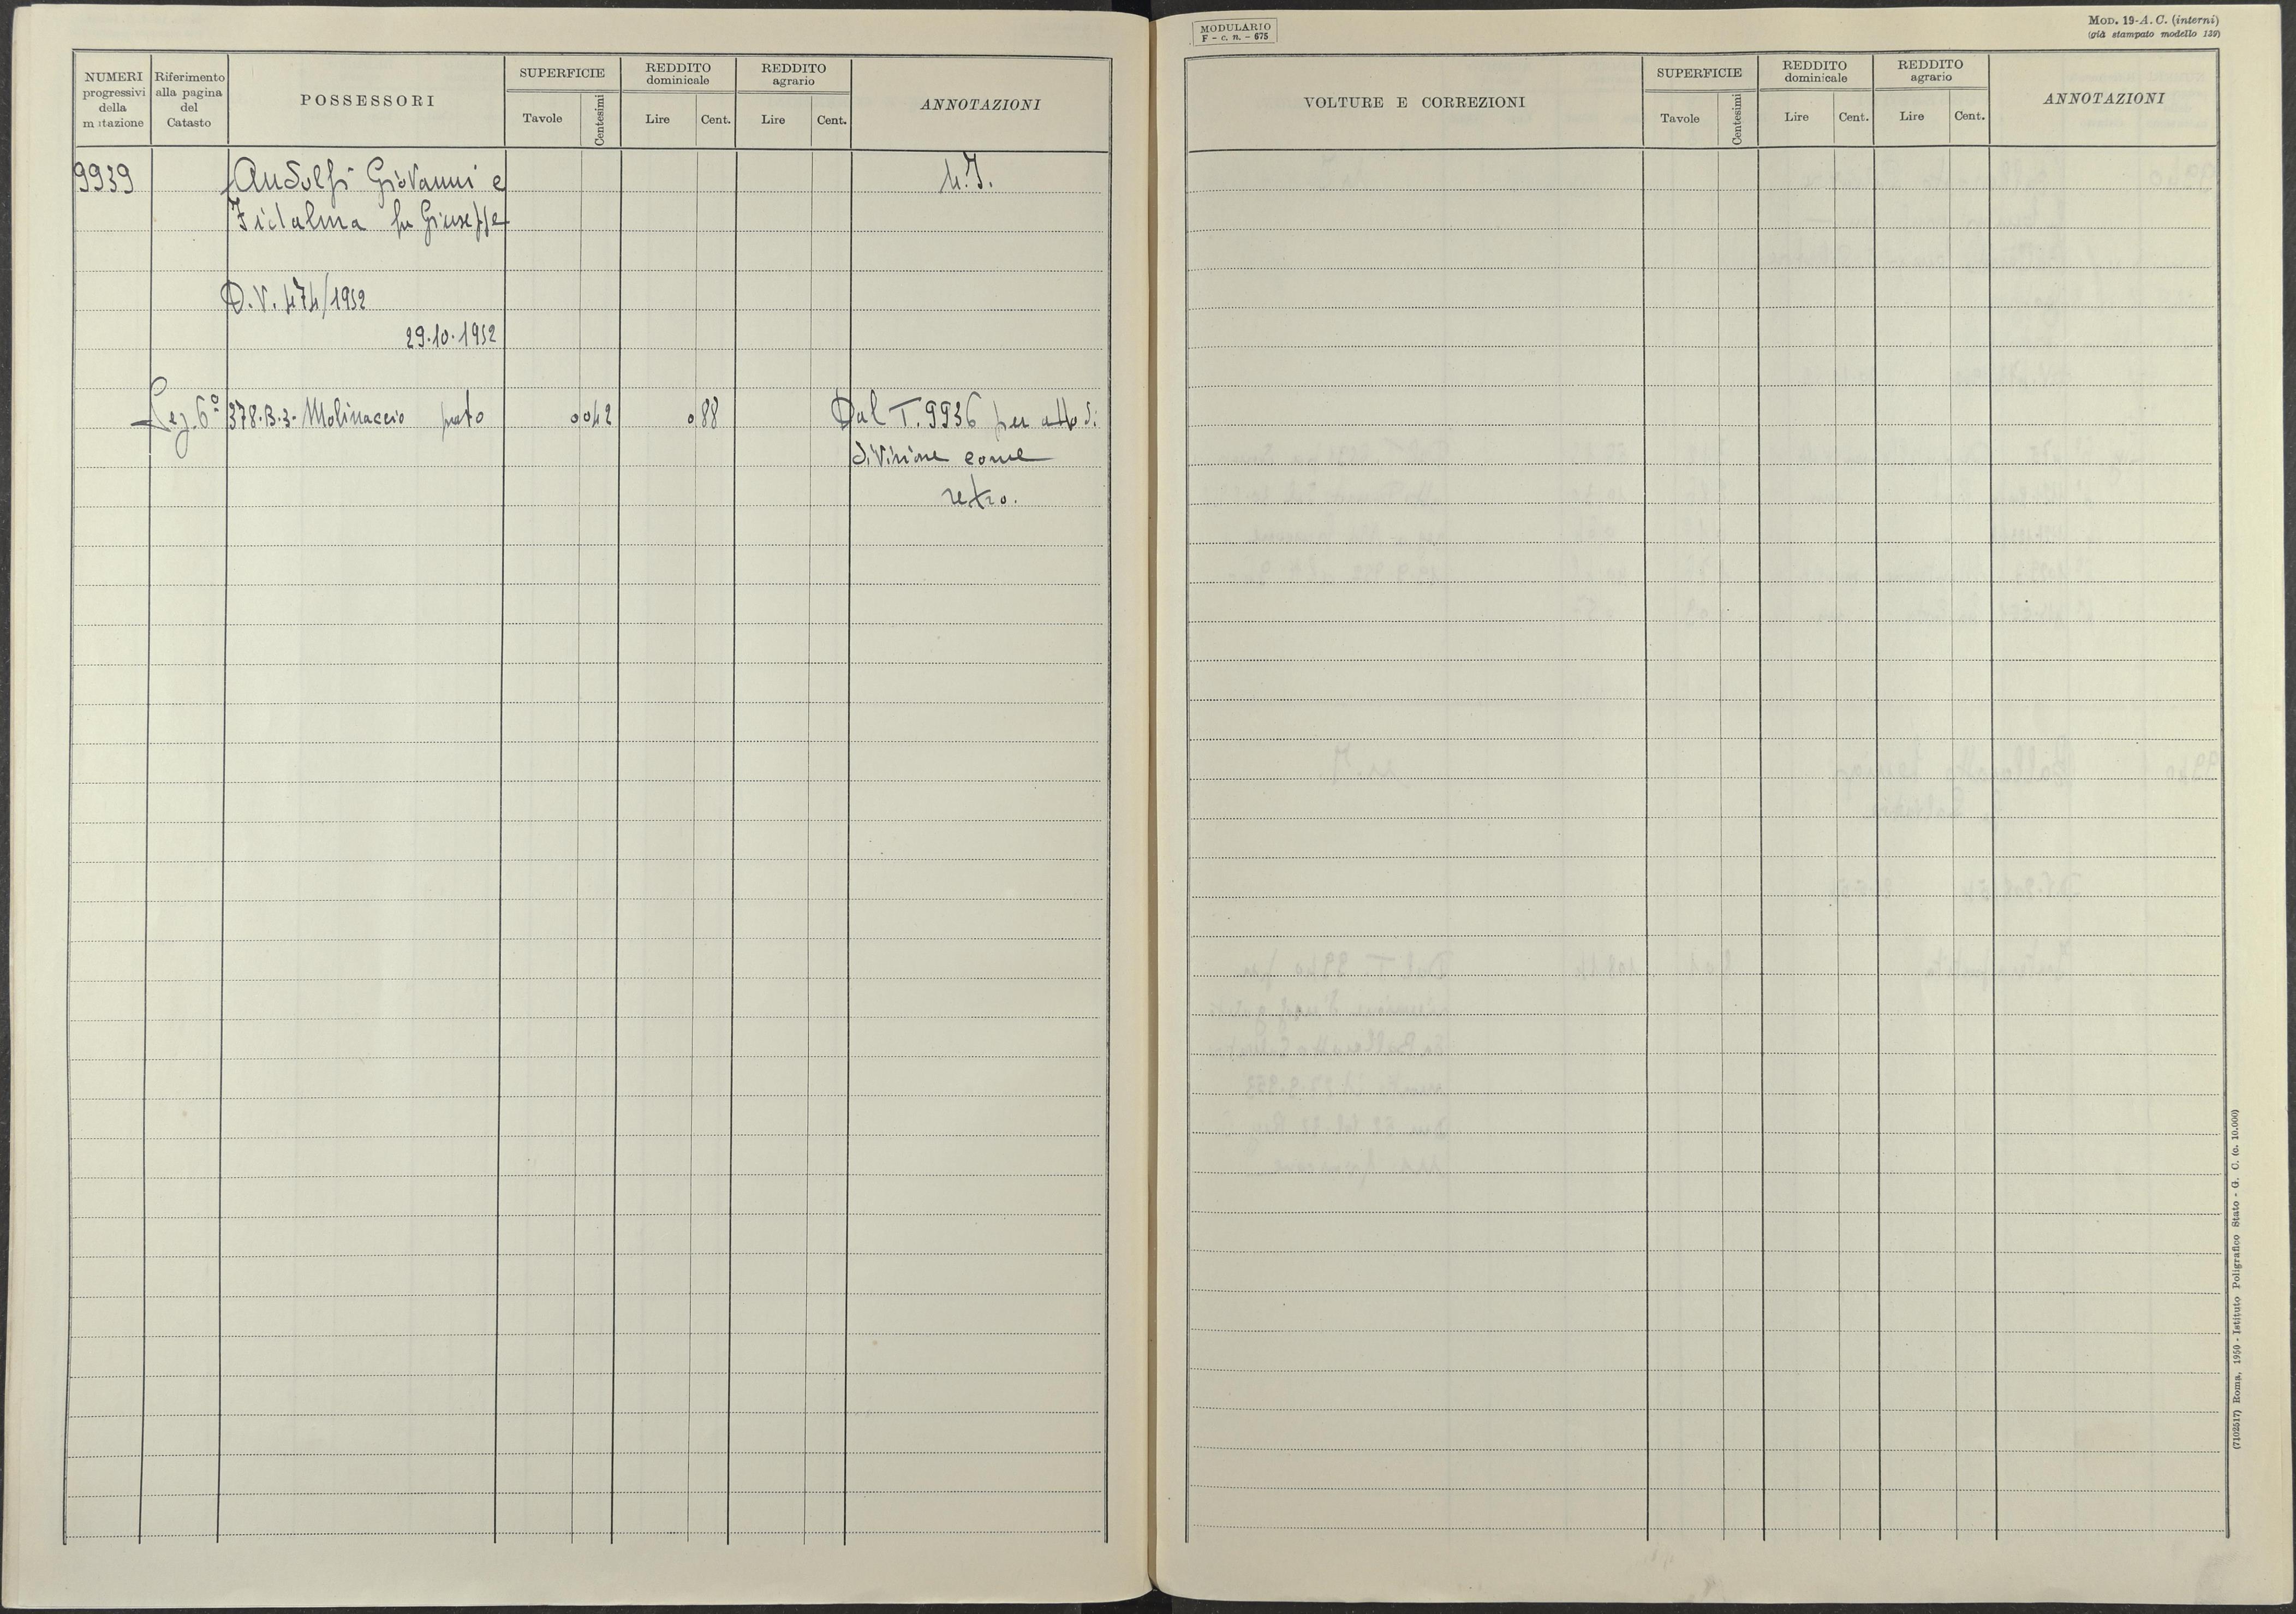 NUMERI progressivi della mutazione
Riferimento alla pagina del Catasto
POSSESSORI
SUPERFICIE
Tavole
Centesimi
REDDITO dominicale
Lire
Cent.
REDDITO agrario
Lire
Cent.
ANNOTAZIONI
9939
Andolfi Giovanni e
Fidalma fu Giuseppe
D.V. 474/1952
29.10.1952
Sez. 6° 378.B.3. Molinaccio prato 0 042 0 88
4.7.
Dal T. 9936 per atto di
divisione come
retro.
MODULARIO
F - c. n. - 675
MOD. 19-A. C. (interni)
(già stampato modello 139)
VOLTURE E CORREZIONI
SUPERFICIE
Tavole
Centesimi
REDDITO dominicale
Lire
Cent.
REDDITO agrario
Lire
Cent.
ANNOTAZIONI
(7102517) Roma, 1950 - Istituto Poligrafico Stato - G. C. (c. 10.000)